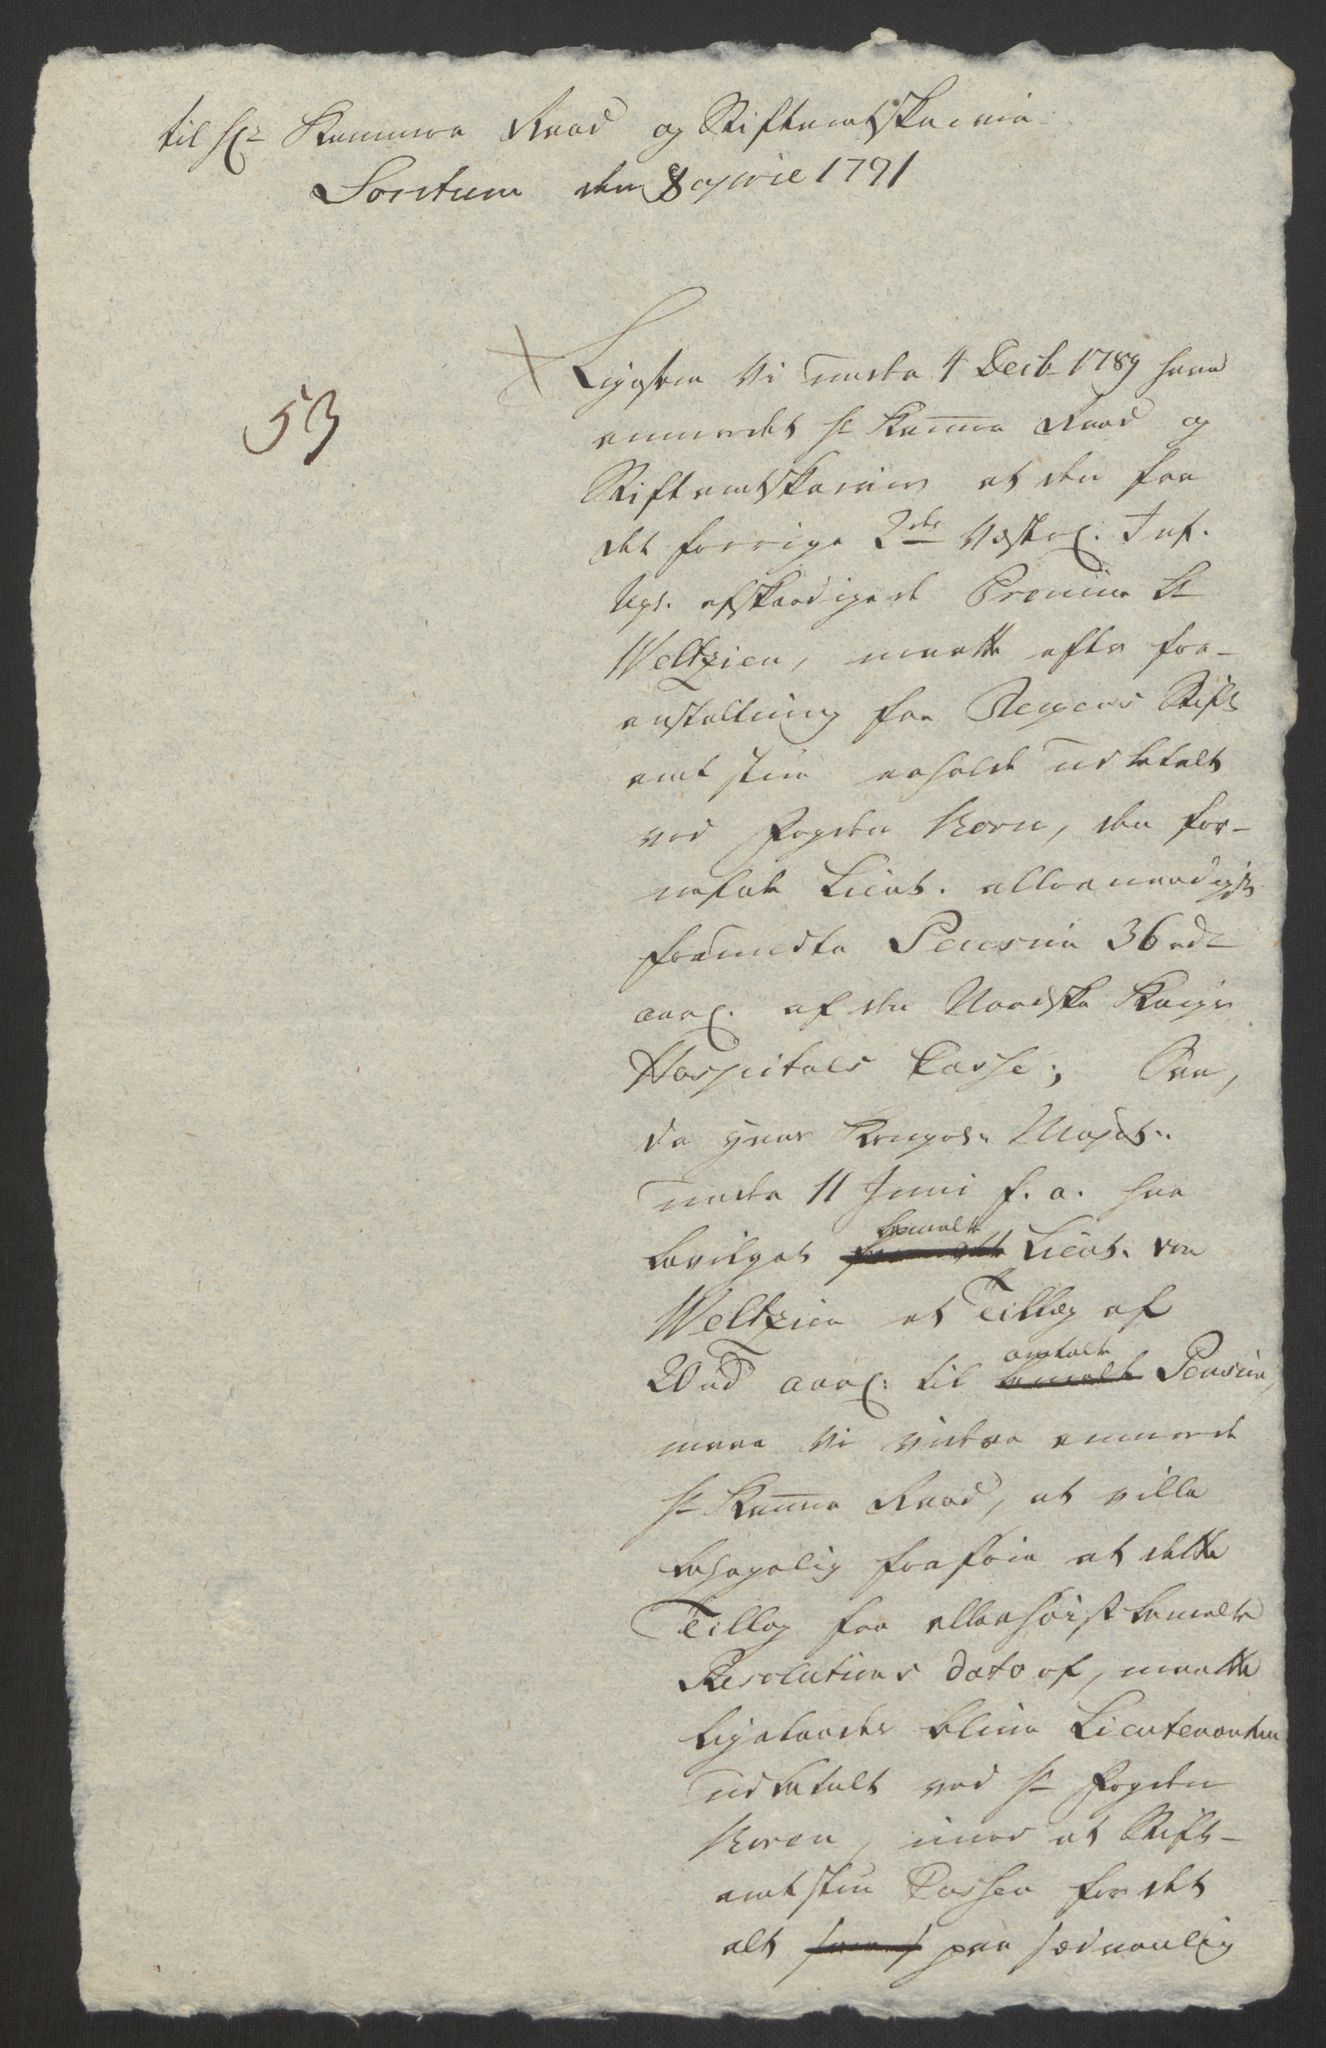 til Hr Kammer Raad og Stiftamtskriver
Sontum den 8 april 1791
53
Ligesom Vi under 4 Decb 1789 have
anmodet Hr Kammer Raad og
Stiftamtskriver at den fra
det forrige 2det Vesterl. Inf.
Rgt. afskeedigede Premier Lt
Weltzien, maatte efter for-
anstaltning fra Bergens Stift
amtstue erholde udbetalt
ved Fogden Koren, den for-
meldte Lieut. allernaadigst
forundte Pension 36 rdr
aarl. af den Norske Krigs
Hospitals Casse; Saa,
da Hans Kongel. Majst.
under 11 Juni f. a. har
bevilget bemeldte Lieut. von
Weltzien et Tillæg af
20 rd aarl. til omtalte Pension,
maae Vi videre anmode
Hr Kammer Raad, at ville
behagelig forføie at dette
Tillæg fra allerhøist bemeldte
Resolutions dato af, maatte
ligeledes blive Lieutenanten
udbetalt ved Hr Fogden
Koren, imod at Stift-
amtstue Cassen for det
alt paa sædvanlig